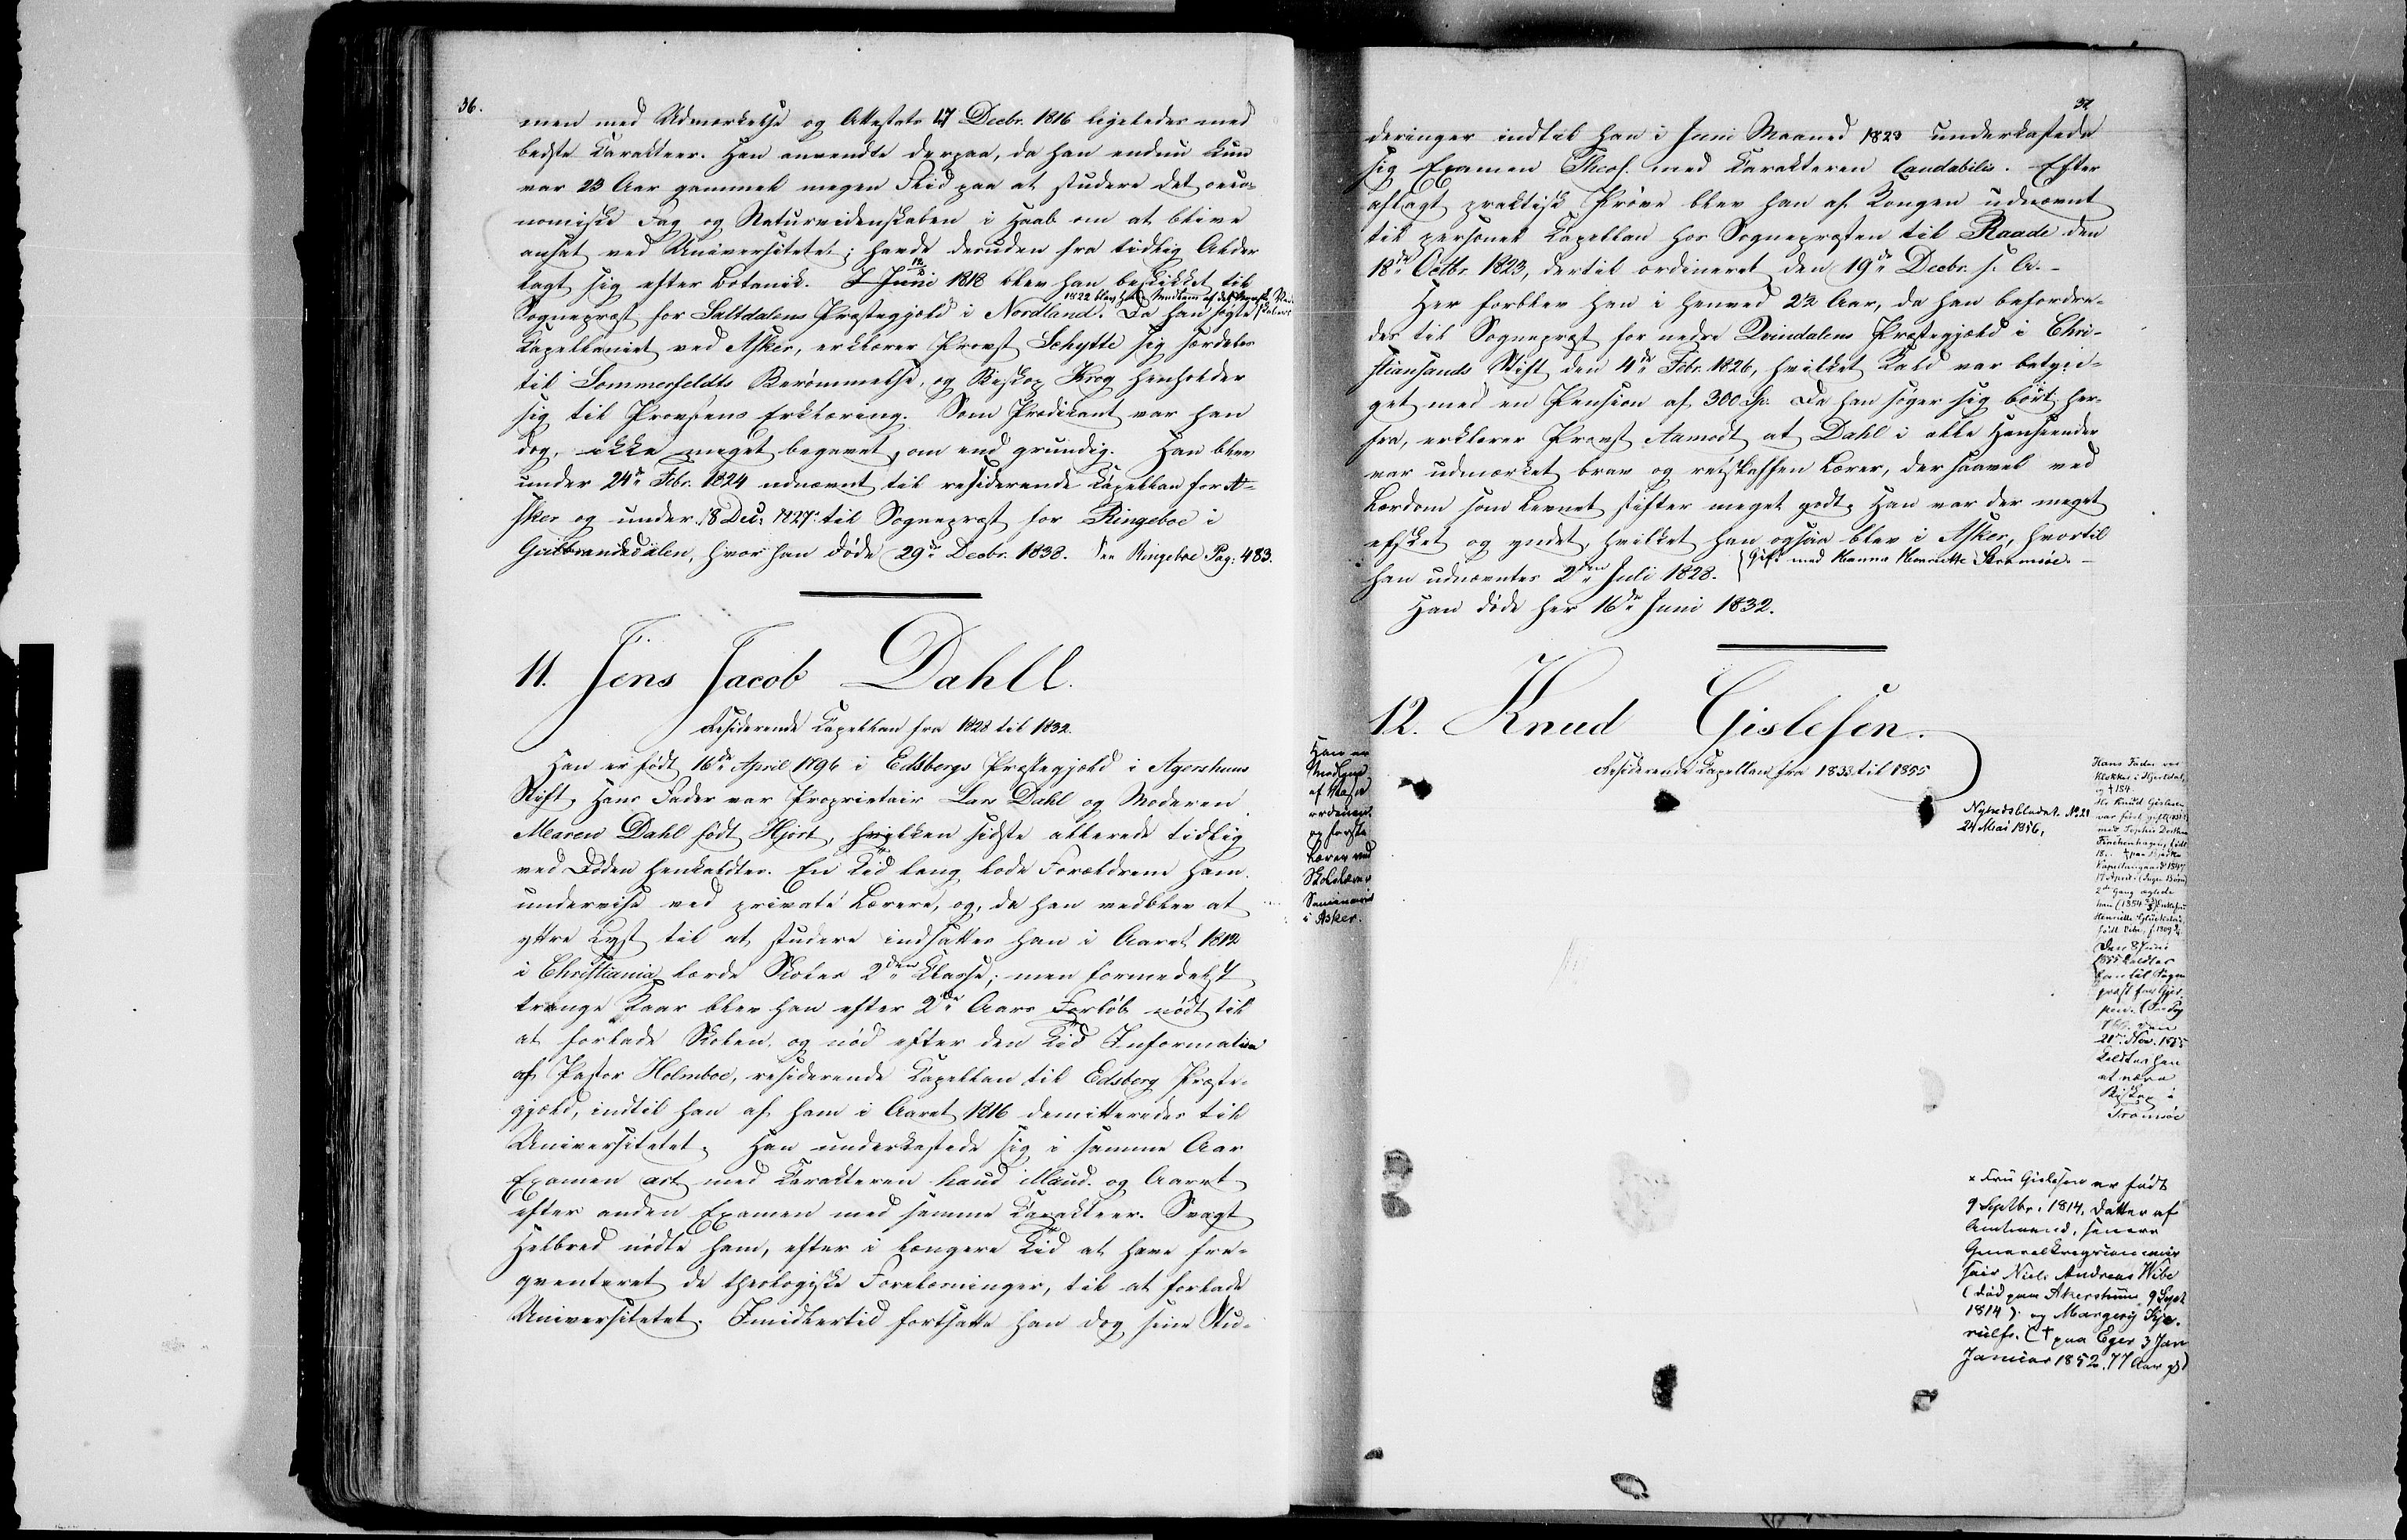 36.
men med Udmærkelse og Attestats 17 Decbr. 1816 ligeledes med
bedste Karakteer. Han anvendte derpaa, da han endnu kun
var 23 Aar gammel megen Flid paa at studere det oeco-
nomiske Fag og Naturvidenskaben i Haab om at blive
ansat ved Universitetet; havde desuden fra tidlig Alder
lagt sig efter Botanik. I Juni 1818 blev han beskikket til
1822 blev han Medlem af det
Sognepræst for Saltdalens Præstegjæld i Nordland. Da han søgte
Kapellaniet ved Asker, erklærer Provst Schytte sig særdeles
til Sommerfeldts Berømmelse, og Biskop Krog henholder
sig til Provstens Erklæring. Som Prædikant var han
dog ikke meget begavet, om end grundig. Han blev
under 24de Febr. 1824 udnævnt til residerende Kapellan for A-
sker og under 18 Dec. 1827 til Sognepræst for Ringeboe i
Gulbrandsdalen, hvor han døde 29de Decbr. 1838. See Ringeboe Pag: 483.
11. Jens Jacob Dahll.
Residerende Kapellan fra 1828 til 1832.
Han er født 16de April 1796 i Edsbergs Præstegjæld i Agershuus
Stift, Hans Fader var Proprietair Lars Dahl og Moderen
Maren Dahl født Hjort, hvilken sidste allerede tidlig
ved Døden henkaldtes. En Tid lang lode Forældrene ham
undervise ved private Lærere, og, da han vedblev at
yttre Lyst til at studere indsattes han i Aaret 1812
i Christiania lærde Skoles 2den Klasse; men formedelst
trange Kaar blev han efter 2de Aars Forløb nødt til
at forlade Skolen, og nød efter den Tid Information
af Pastor Holmboe, residerende Kapellan til Edsberg Præste-
gjæld, indtil han af ham i Aaret 1816 demitteredes til
Universitetet. Han underkastede sig i samme Aar
Examen art. med Karakteren haud illaud. og Aaret
efter anden Examen med samme Karakteer. Svagt
Helbred nødte ham, efter i længere Tid at have fre-
qventeret de theologiske Forelæsninger, til at forlade
Universitetet. Imidlertid fortsatte han dog sine Stu-
37
deringer indtil han i Juni Maaned 1823 underkastede
sig Examen Theol. med Karakteren laudabilis. Efter
aflagt praktisk Prøve blev han af Kongen udnævnt
til personel Kapellan hos Sognepræsten til Raade den
18de Octbr. 1823, dertil ordineret den 19de Decbr. s. A.-
Her forblev han i henved 2½ Aar, da han befordre-
des til Sognepræst for nedre Qvindalens Præstegjæld i Chri-
stiansands Stift den 4de Febr. 1826, hvilket Kald var betyn-
get med en Pension af 300 Sp. Da han søger sig bort her-
fra, erklærer Provst Aamodt at Dahl i alle Henseender
var udmærket brav og retskaffen Lærer, der saavel ved
Lærdom som Levnet stifter meget godt. Han var der meget
elsket og yndet, hvilket han ogsaa blev i Asker, hvortil
han udnævntes 2den Juli 1828. (Gift med Hanna Henriette Stromsøe.-
Han døde her 16de Juni 1832.
12. Knud Gislesen.
Residerende Kapellan fra 1833 til 1855
Han er
Medlem
af Vasa
ordenen
og første
Lærer ved
Skolelærer
Seminariet
i Asker.
Nyhedsbladet. No. 21
24 Mai 1856,
Hans Fader var
Klokker i Hjertdal,
og † 184
Hr Knud Gislesen
var først gift
med Sophie Dorthea
Finckenhagen, født
Den 8 Juni
1855 kaldtes
han til Sogne
præst for Gjer-
pen.
21de Nov. 1855
kaldtes han
at være
Biskop i
Tromsøe
x Fru Gislesen er født
9 Septbr. 1814, Datter af
Amtmand, senere
Generalkrigscommis
sair Niels Andreas Wibe
(død paa Akershuus 9 Sept
1814) og Margery Kje-
rulf. († paa Eger 3 Jan
Januar 1852, 77 Aar gl)